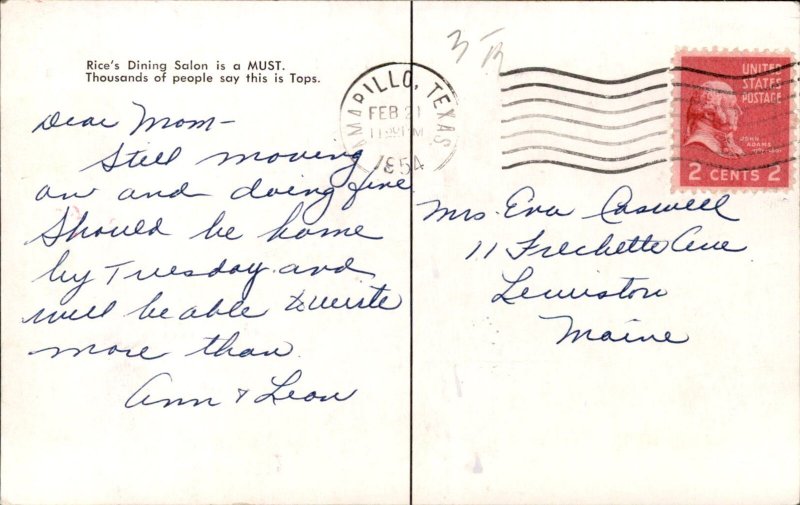 Rice's Dining Salon is a MUST.
Thousands of people say this is Tops.
AMARILLO, TEXAS
FEB 21
1954
UNITED
STATES
POSTAGE
JOHN
ADAMS
2 CENTS 2
Dear Mom -
Still moving
on and doing fine
Should be home
by Tuesday and
will be able to write
more than
Ann & Leon
Mrs. Eva Caswell
11 Frechette Ave
Lewiston
Maine